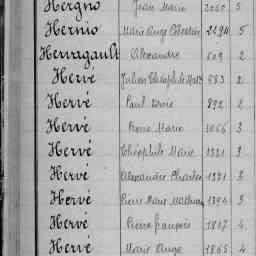 Hergno Jean Marie 2060 5
Hernio Marie Ange Célestin 2290 5
Herragault Alexandre 509 2
Hervé Julien Théophile 653 2
Hervé Paul Louis 892 2
Hervé Pierre Marie 1066 3
Hervé Théophile Marie 1321 3
Hervé Alexandre Charles 1371 3
Hervé Pierre Marie Mathurin 1394 3
Hervé Pierre françois 1817 4
Hervé Marie Ange 1865 4